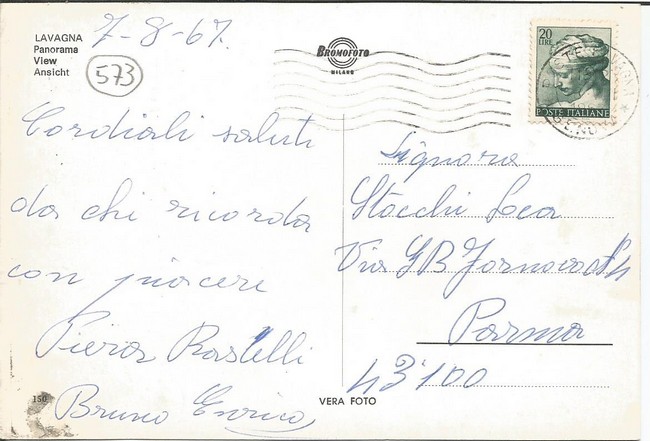 LAVAGNA
Panorama
View
Ansicht
7-8-67.
573
BROMOFOTO
MILANO
20
LIRE
POSTE ITALIANE
Cordiali saluti
da chi ricorda
con piacere
Piera Rastelli
Bruno Enrico
Signora
Stocchi
Via GB
Parma
43100
150
VERA FOTO